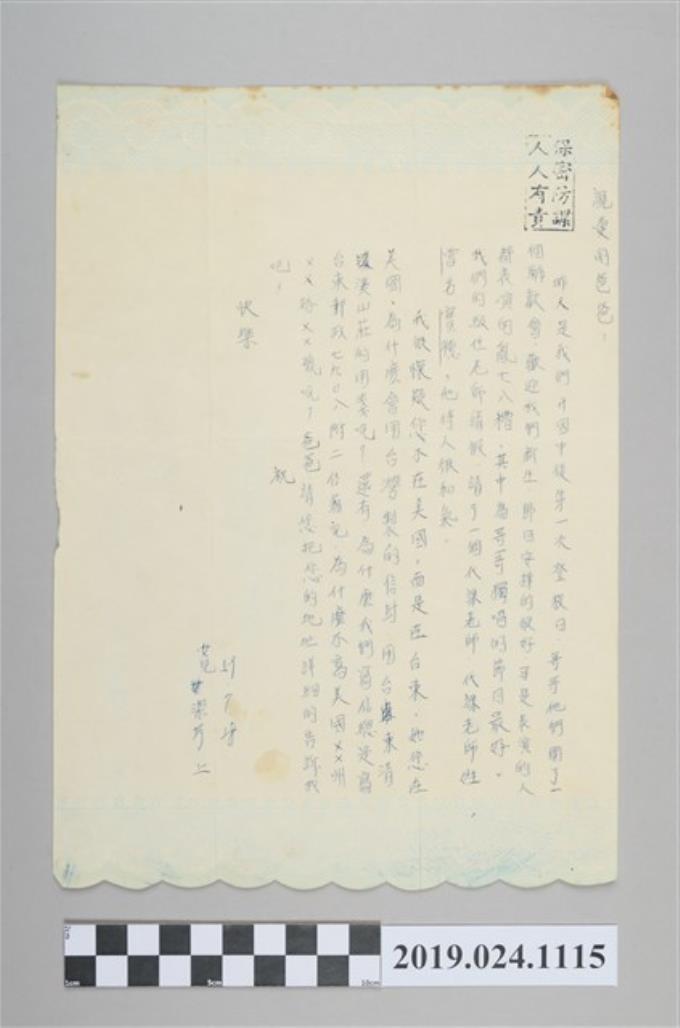 保密防諜
人人有責
親愛的爸爸：
昨天是我們升國中後第一次登校日，哥哥他們開了一
個聯歡會，歡迎我們新生，節目安排的很好，可是表演的人
都表演的亂七八糟，其中為哥哥獨唱的節目最好。
我們的級任老師請假，請了一個代課老師，代課老師姓
曾名寶穗，他待人很和氣。
我很懷疑您不在美國，而是在台東，如您在
美國，為什麼會用台灣製的信封，用台東清
溪山莊的用箋呢？還有，為什麼我們寫信總是寫
台東郵政七九〇八附二信箱呢，為什麼不寫美國××州
××路××號呢？爸爸請您把您的地址詳細的告訴我
吧！
祝
快樂
女兒
潔 上
2019.024.1115